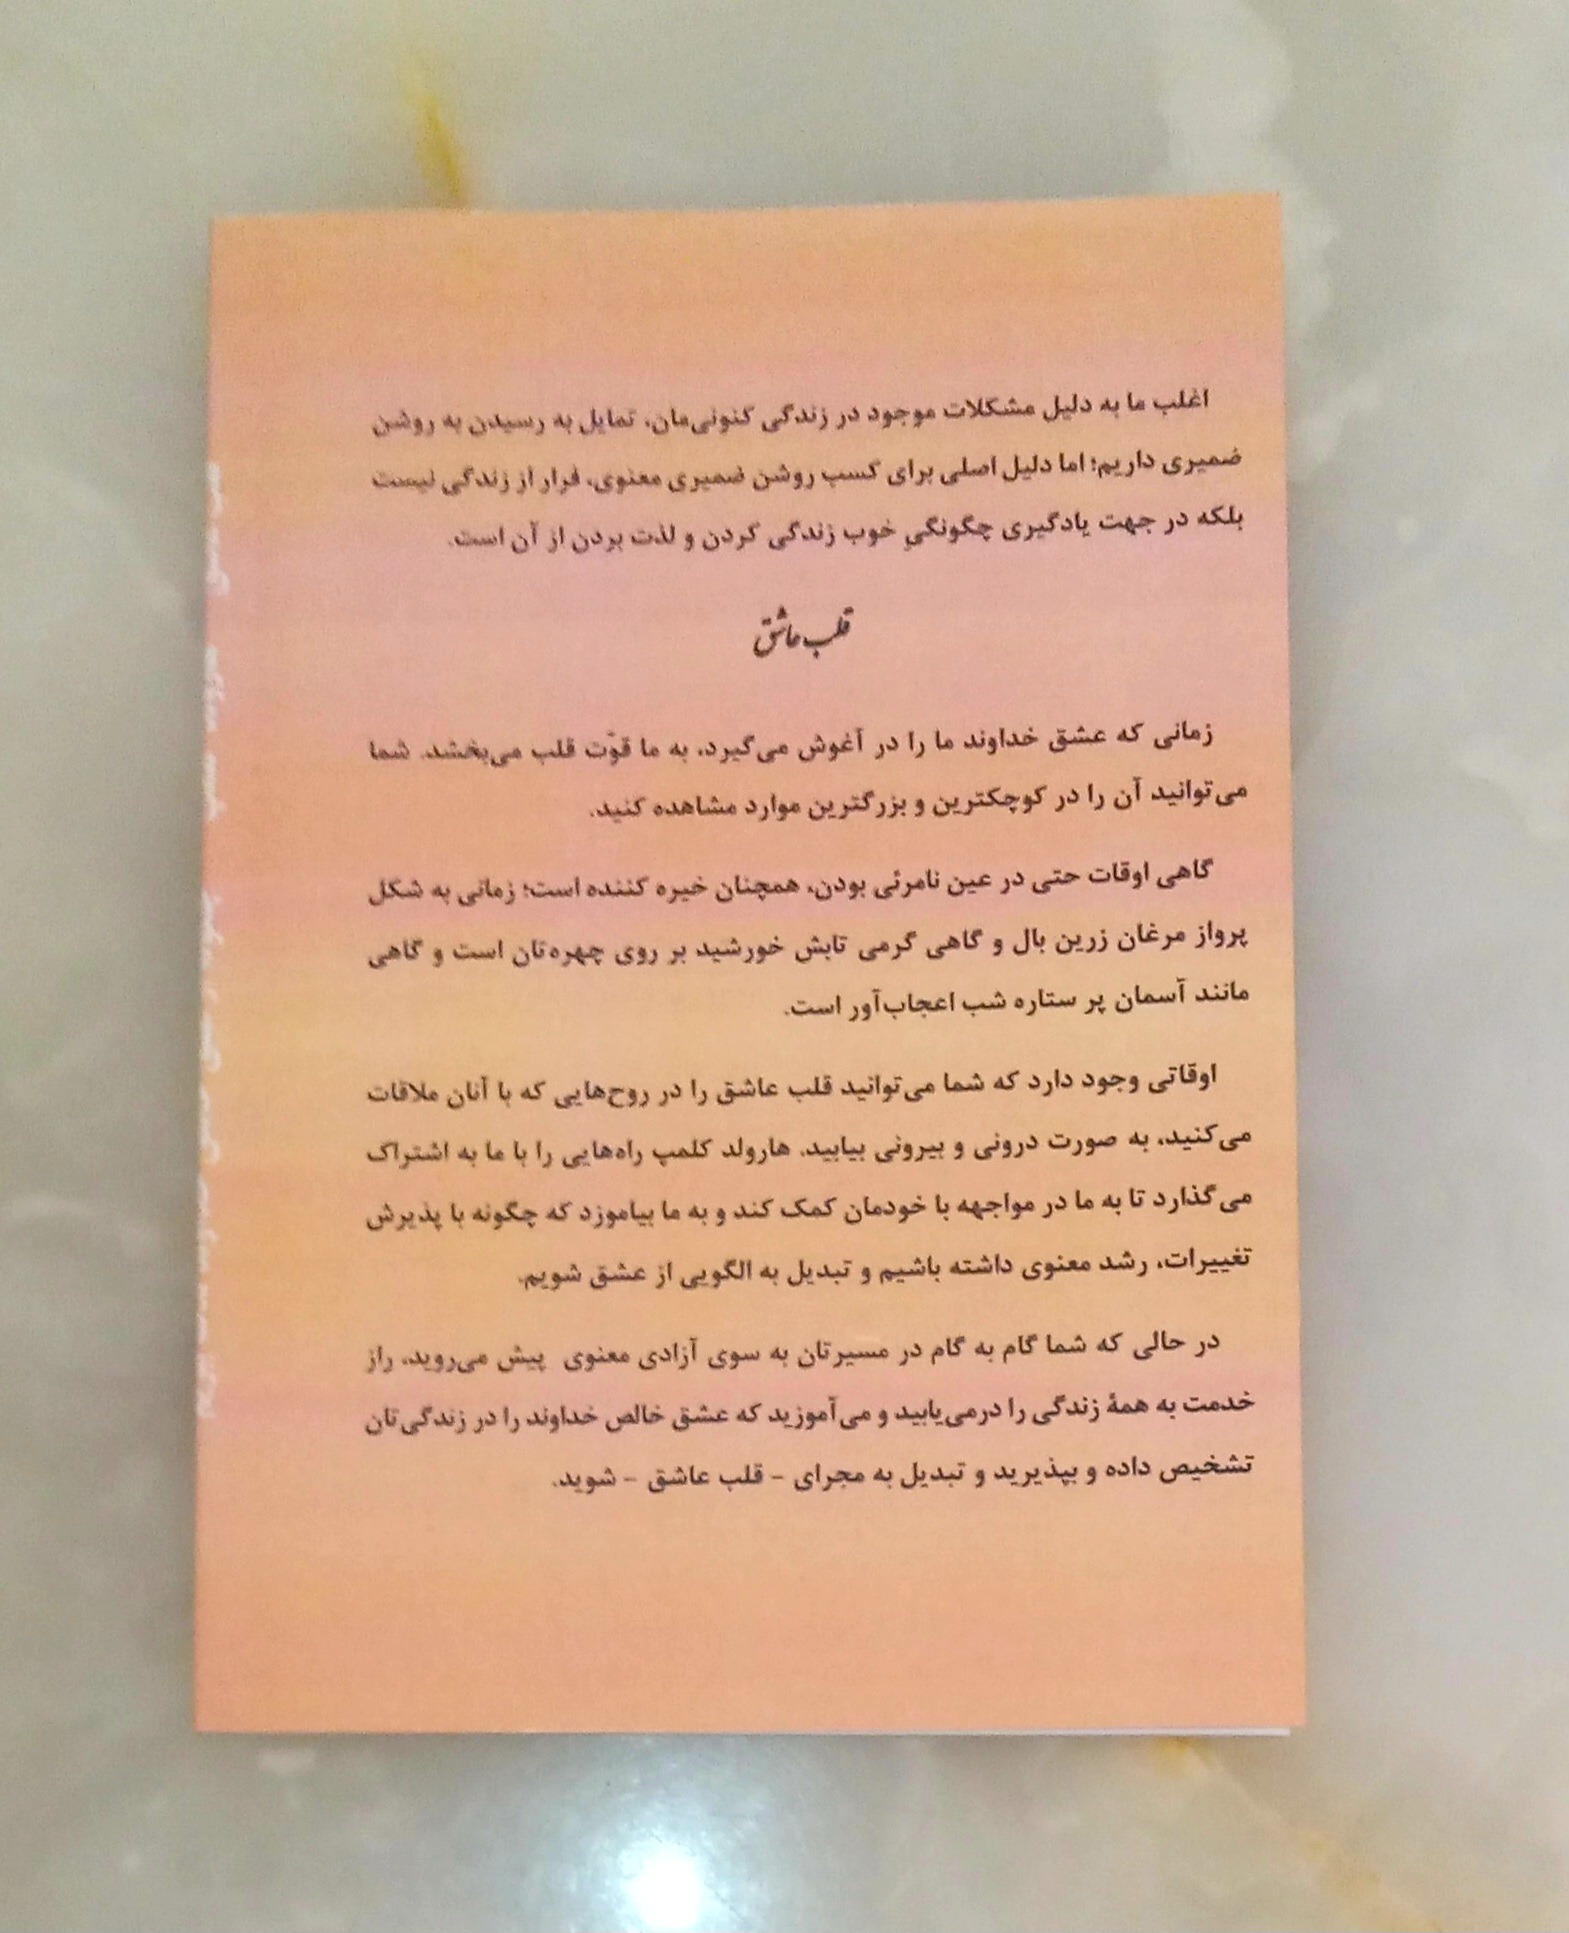 اغلب ما به دلیل مشکلات موجود در زندگی کنونی‌مان، تمایل به رسیدن به روشن
ضمیری داریم؛ اما دلیل اصلی برای کسب روشن ضمیری معنوی، فرار از زندگی نیست
بلکه در جهت یادگیری چگونگیِ خوب زندگی کردن و لذت بردن از آن است.
قلب عاشق
زمانی که عشق خداوند ما را در آغوش می‌گیرد، به ما قوّت قلب می‌بخشد. شما
می‌توانید آن را در کوچکترین و بزرگترین موارد مشاهده کنید.
گاهی اوقات حتی در عین نامرئی بودن، همچنان خیره کننده است؛ زمانی به شکل
پرواز مرغان زرین بال و گاهی گرمی تابش خورشید بر روی چهره‌تان است و گاهی
مانند آسمان پر ستاره شب اعجاب‌آور است.
اوقاتی وجود دارد که شما می‌توانید قلب عاشق را در روح‌هایی که با آنان ملاقات
می‌کنید، به صورت درونی و بیرونی بیابید. هارولد کلمپ راه‌هایی را با ما به اشتراک
می‌گذارد تا به ما در مواجهه با خودمان کمک کند و به ما بیاموزد که چگونه با پذیرش
تغییرات، رشد معنوی داشته باشیم و تبدیل به الگویی از عشق شویم.
در حالی که شما گام به گام در مسیرتان به سوی آزادی معنوی پیش می‌روید، راز
خدمت به همهٔ زندگی را درمی‌یابید و می‌آموزید که عشق خالص خداوند را در زندگی‌تان
تشخیص داده و بپذیرید و تبدیل به مجرای - قلب عاشق - شوید.